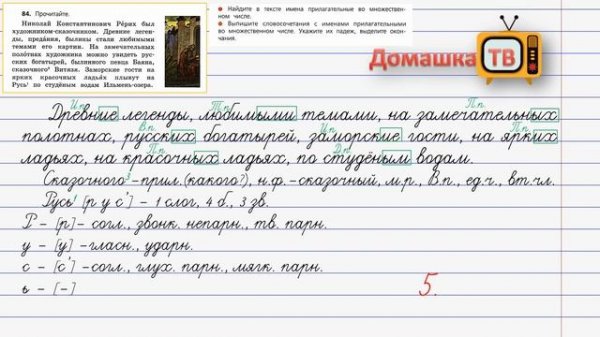 84. Прочитайте.
Николай Константинович Рёрих был
художником-сказочником. Древние леген-
ды, предания, былины стали любимыми
темами его картин. На замечательных
полотнах художника можно увидеть рус-
ских богатырей, былинного певца Баяна,
сказочного³ Витязя. Заморские гости на
ярких красочных ладьях плывут на
Русь¹ по студёным водам Ильмень-озера.
● Найдите в тексте имена прилагательные во множествен-
ном числе.
● Выпишите словосочетания с именами прилагательными
во множественном числе. Укажите их падеж, выделите окон-
чания.
Домашка ТВ
И.п. Т.п. П.п.
Древние легенды, любимыми темами, на замечательных
В.п. И.п. П.п.
полотнах, русских богатырей, заморские гости, на ярких
П.п. Д.п.
ладьях, на красочных ладьях, по студёным водам.
Сказочного³ - прил. (какого?), н.ф. - сказочный, м.р., В.п., ед.ч., вт.чл.
Русь¹ [р у с'] - 1 слог, 4 б., 3 зв.
Р - [р] - согл., звонк. непарн., тв. парн.
у - [у] - гласн., ударн.
с - [с'] - согл., глух. парн., мягк. парн.
ь - [-]
5.